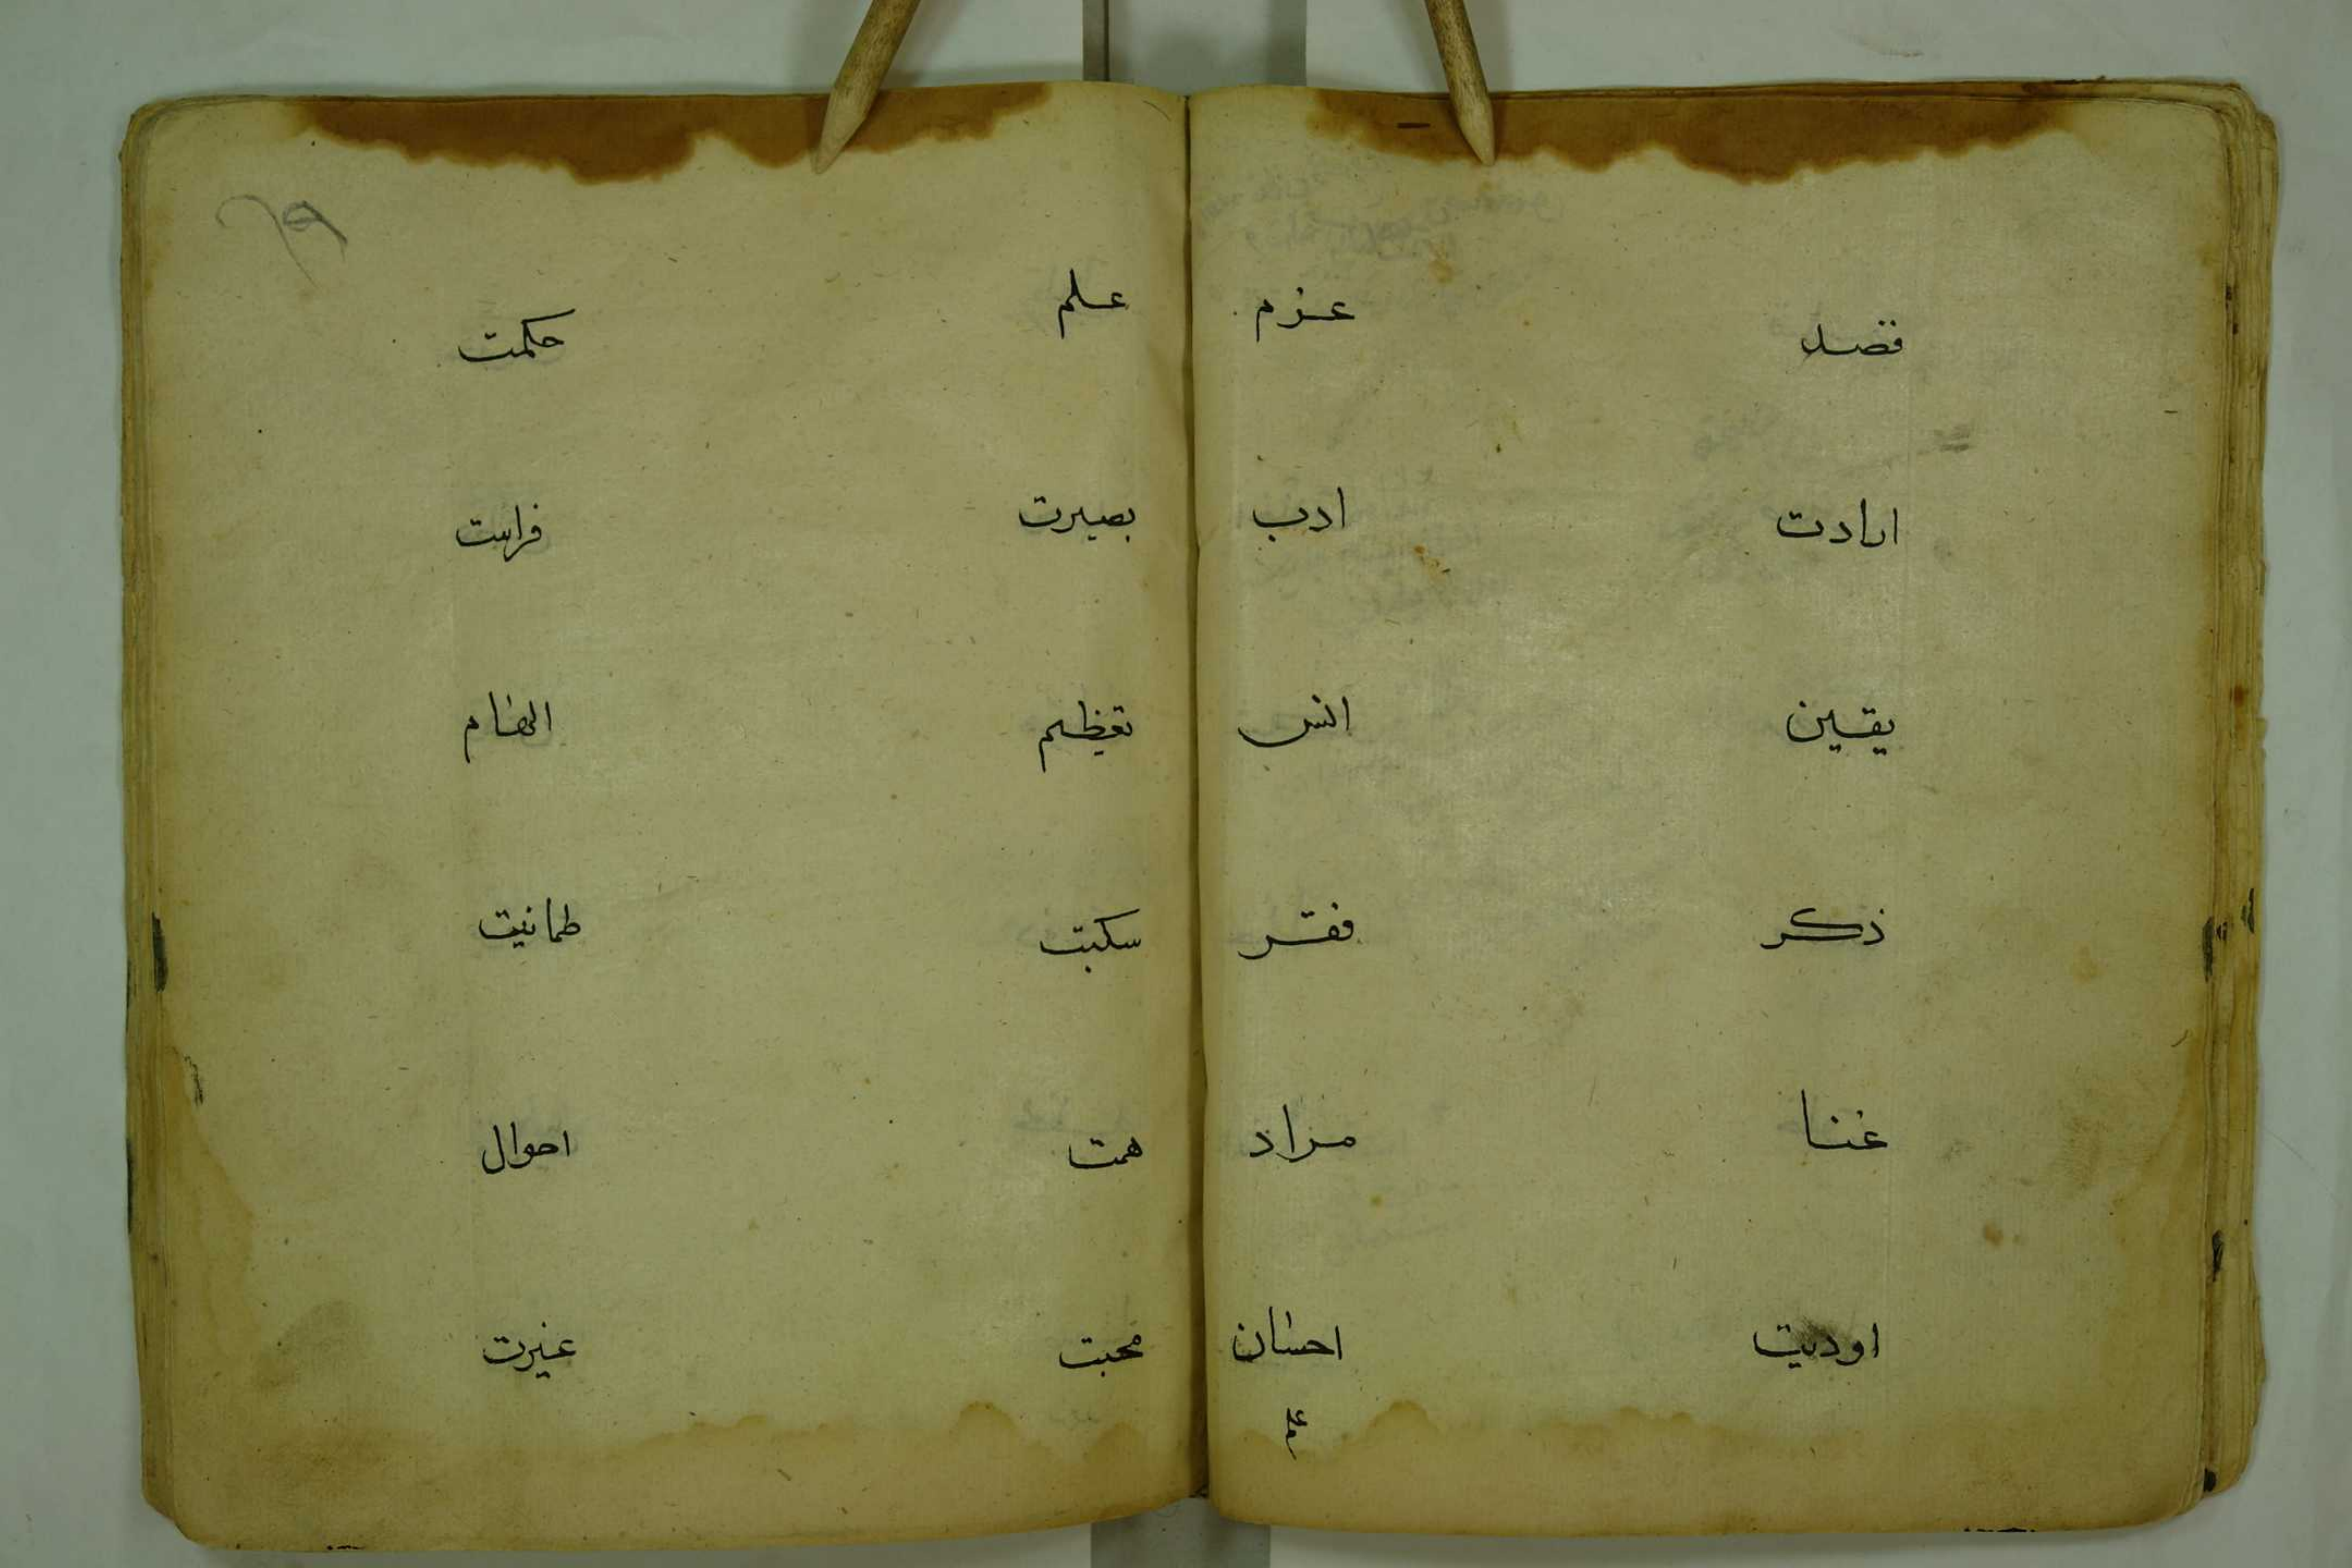 قصد عزم
ارادت ادب
يقين انس
ذكر فقر
غنا مراد
اوديت احسان
علم
علم حكمت
بصيرت فراست
تعظيم الهام
سكينت طمانيت
همت احوال
محبت غيرت